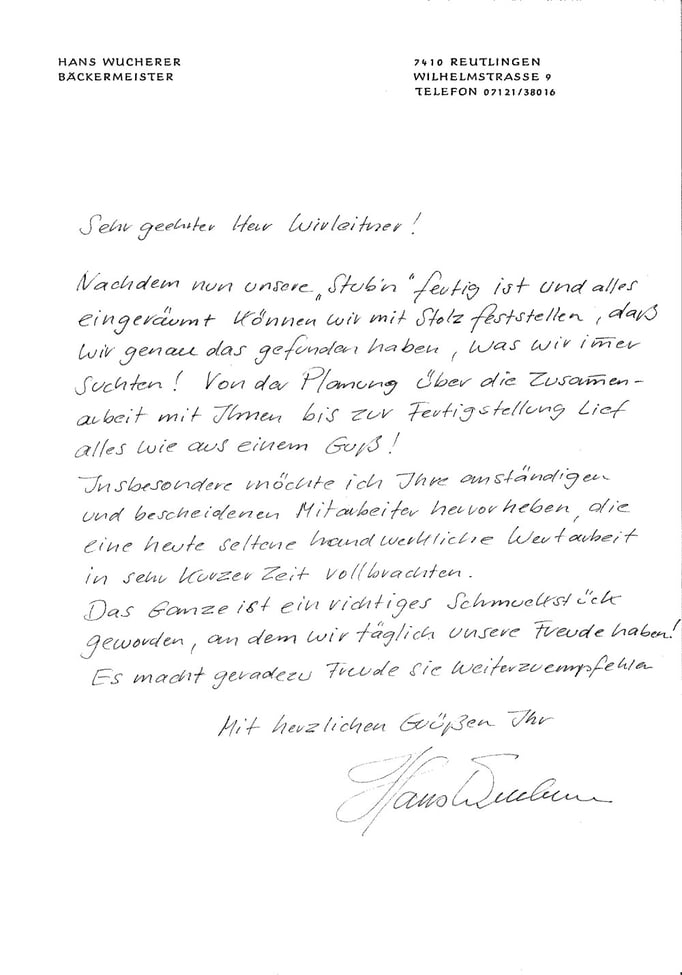 HANS WUCHERER
BÄCKERMEISTER
7410 REUTLINGEN
WILHELMSTRASSE 9
TELEFON 07121/38016
Sehr geehrter Herr Wirleitner!
Nachdem nun unsere „Stub'n" fertig ist und alles
eingeräumt können wir mit Stolz feststellen, daß
wir genau das gefunden haben, was wir im̅er
suchten! Von der Planung über die Zusam̅en-
arbeit mit Ihnen bis zur Fertigstellung lief
alles wie aus einem Guß!
Insbesondere möchte ich Ihre anständigen
und bescheidenen Mitarbeiter hervorheben, die
eine heute seltene handwerkliche Wertarbeit
in sehr kurzer Zeit vollbrachten.
Das Ganze ist ein richtiges Schmuckstück
geworden, an dem wir täglich unsere Freude haben!
Es macht geradezu Freude sie weiterzuempfehlen
Mit herzlichen Grüßen Ihr
Hans Wucherer